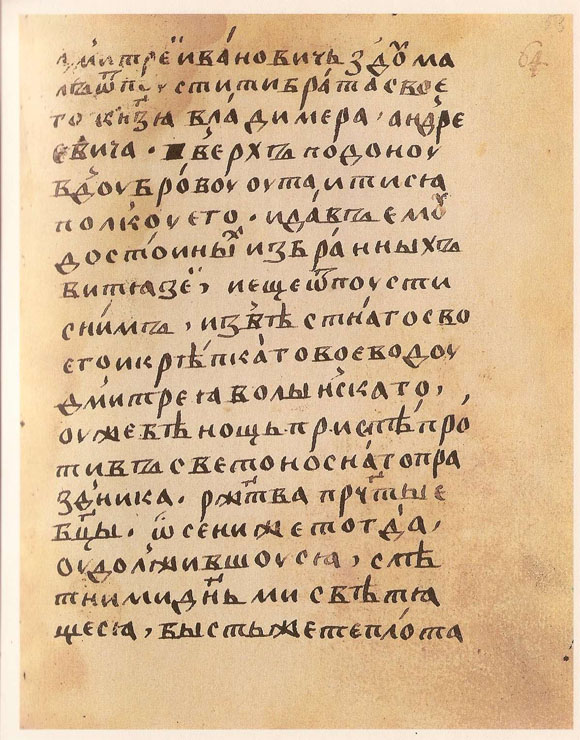 64
дмитреи ивановичь здоума
лъ ѿпустити брата свое
го кнзя владимера, андре
евича. вверхъ по дону
вдоуброву оутаитися
полку его. и давъ емоу
достоиных избранныхъ
витязеи, и еще ѿпусти
с нимъ, извѣстнаго сво
его и крѣпкаго воеводоу
дмитрея волынскаго,
оуже въ нощь приспѣ про
тивъ светоноснаго пра
здника. ржтва прчтые
бцы. ѡсени же тогда,
оудолжившоуся, с лѣ
тними днми свѣтя
щеся, бысть же теплота